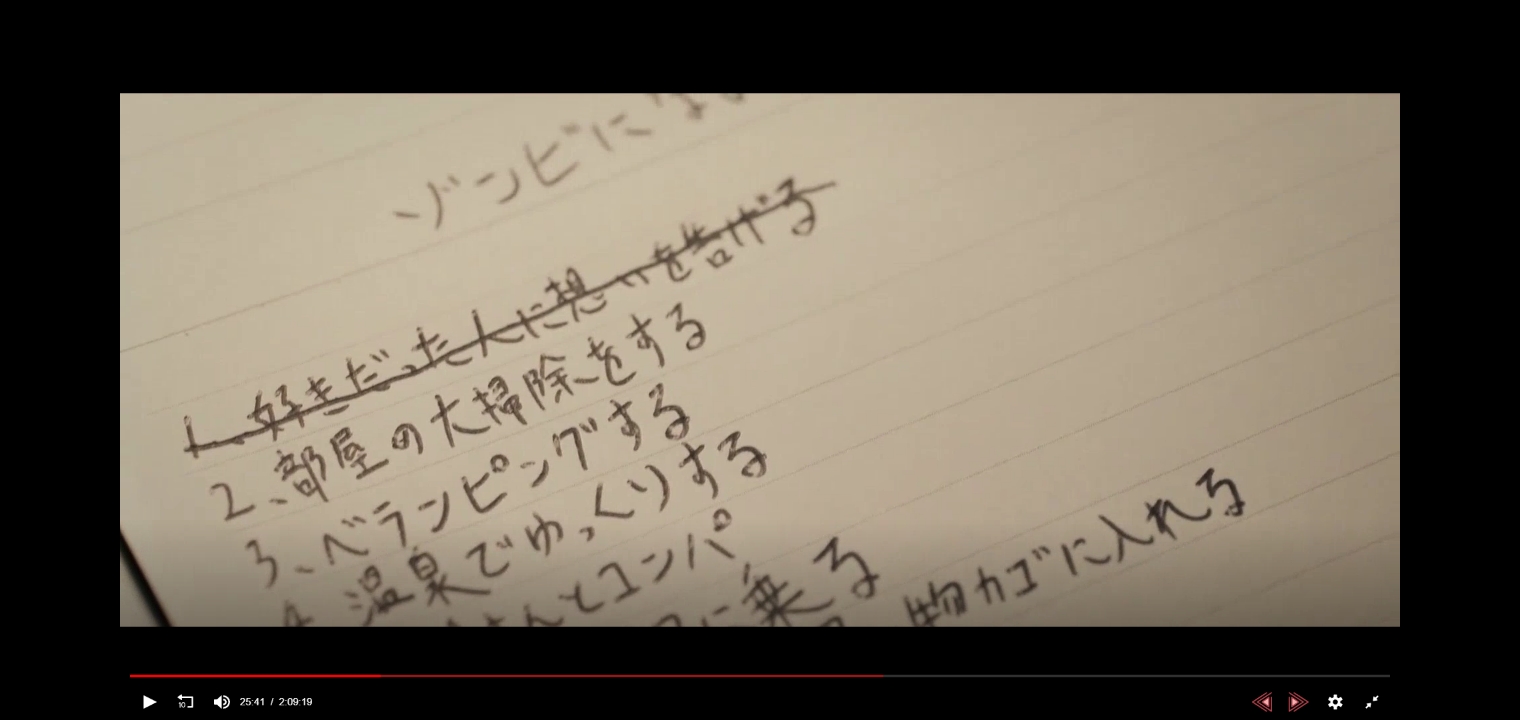 ゾンビにな
1、好きだった人に想いを告げる
2、部屋の大掃除をする
3、ベランピングする
4、温泉でゆっくりする
さんとコンパ
に乗る
物カゴに入れる
10
25:41 / 2:09:19